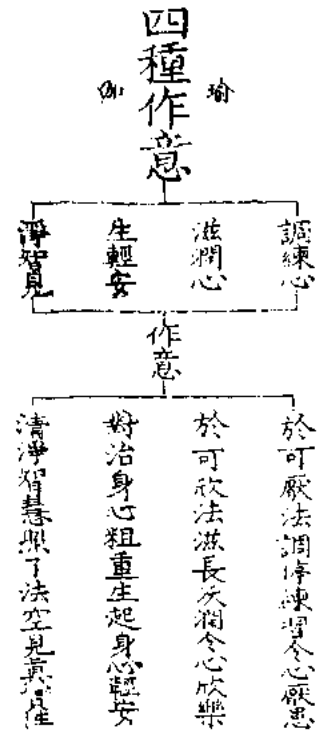 四種作意
瑜
伽
調練心
滋潤心
生輕安
淨智見
作意
於可厭法調停練習令心厭患
於可欣法滋長沃潤令心欣樂
對治身心粗重生起身心輕安
清淨智慧照了法空見真實性